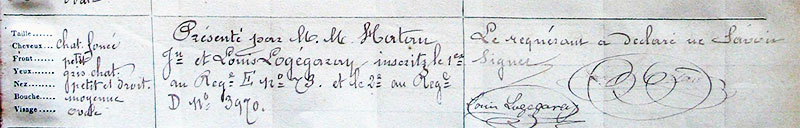 ovale
Taille...... 
Cheveux.... chat. foncé
Front....... petit
Yeux....... gris chat.
Nez........ petit et droit.
Bouche..... moyenne
Visage..... ovale
Présenté par M. M. Hatan
Jn et Louis Logégaray, inscrits le 1er
au Regre E no 73. et le 2e au Regre
D No 3970.
Le requérant a déclaré ne Savoir
Signer
Louis Logegaray